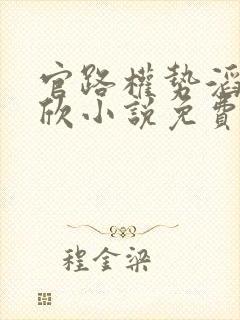 官路權勢滔
欣小說免費
程金梁